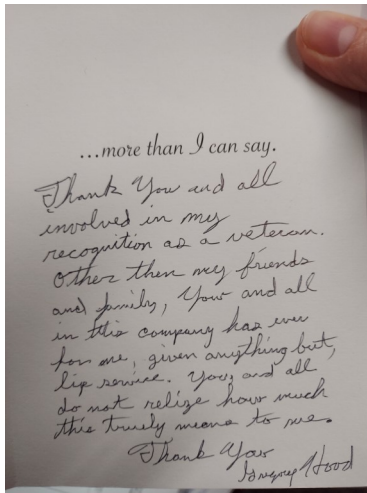 ...more than I can say.
Thank You and all
involved in my
recognition as a veteran.
Other then my friends
and family, Your and all
in this company has ever
for me, given anything but,
lip service. You, and all
do not relize how much
this truely means to me.
Thank You
Gregory Hood